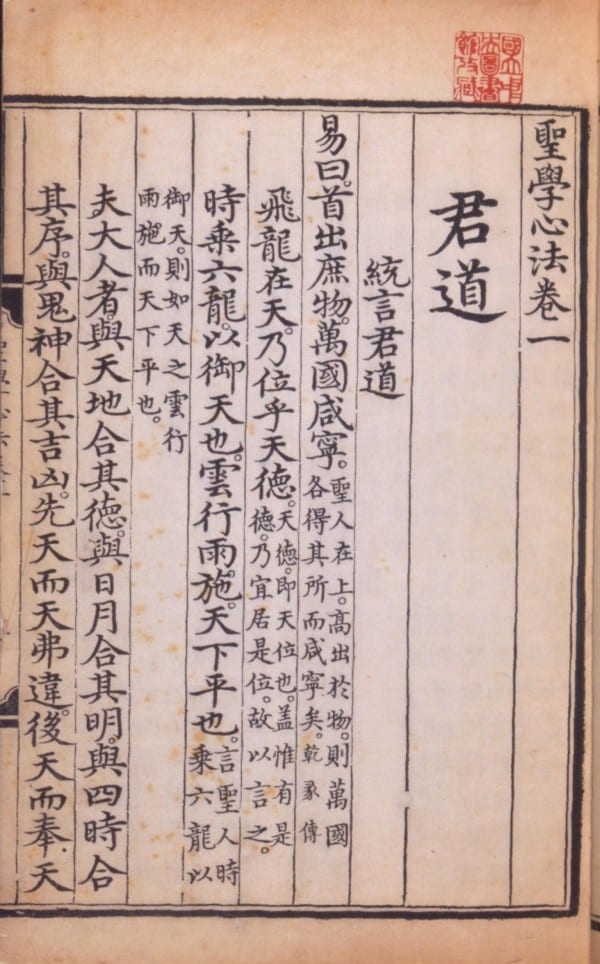 國立中
央圖書
館收藏
聖學心法卷一
君道
統言君道
易曰。首出庶物。萬國咸寧。聖人在上。高出於物。則萬國
各得其所而咸寧矣。乾彖傳
飛龍在天。乃位乎天德。天德。即天位也。盖惟有是
德。乃宜居是位。故以言之。
時乗六龍。以御天也。雲行雨施。天下平也。言聖人時
乗六龍以
御天。則如天之雲行
雨施而天下平也。
夫大人者。與天地合其德。與日月合其明。與四時合
其序。與鬼神合其吉凶。先天而天弗違。後天而奉天